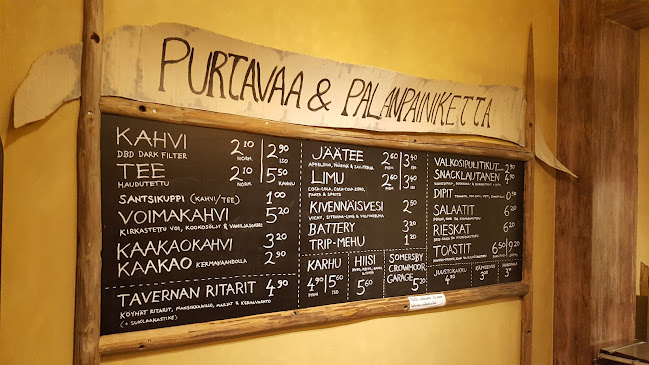 PURTAVAA & PALANPAINIKETTA
KAHVI 2.10 NORM. 2.90 ISO
DBD DARK FILTER
TEE 2.10 NORM. 5.50 KANNU
HAUDUTETTU
SANTSIKUPPI (KAHVI/TEE) 1.00
VOIMAKAHVI 5.20
KIRKASTETTU VOI, KOOKOSÖLJY & VANILJASOKERI
KAAKAOKAHVI 3.20
KAAKAO KERMAVAAHDOLLA 2.90
TAVERNAN RITARIT 4.90
KÖYHÄT RITARIT, MANSIKKAHILLO, MARJAT & KERMAVAAHTO
(+ SUKLAAKASTIKE)
JÄÄTEE 2.60 3.40
LIMU 2.60 3.40
COCA-COLA, COCA-COLA ZERO,
FANTA & SPRITE
KIVENNÄISVESI 2.50
BATTERY 3.40
TRIP-MEHU 1.20
KARHU 4.90 PIENI 5.60 ISO
HIISI
5.60
SOMERSBY
CROWMOOR
GARAGE 5.20
VALKOSIPULITIKUT 2.90
SNACKLAUTANEN 2.90
DIPIT
SALAATIT
RIESKAT
TOASTIT 6.50 9.20